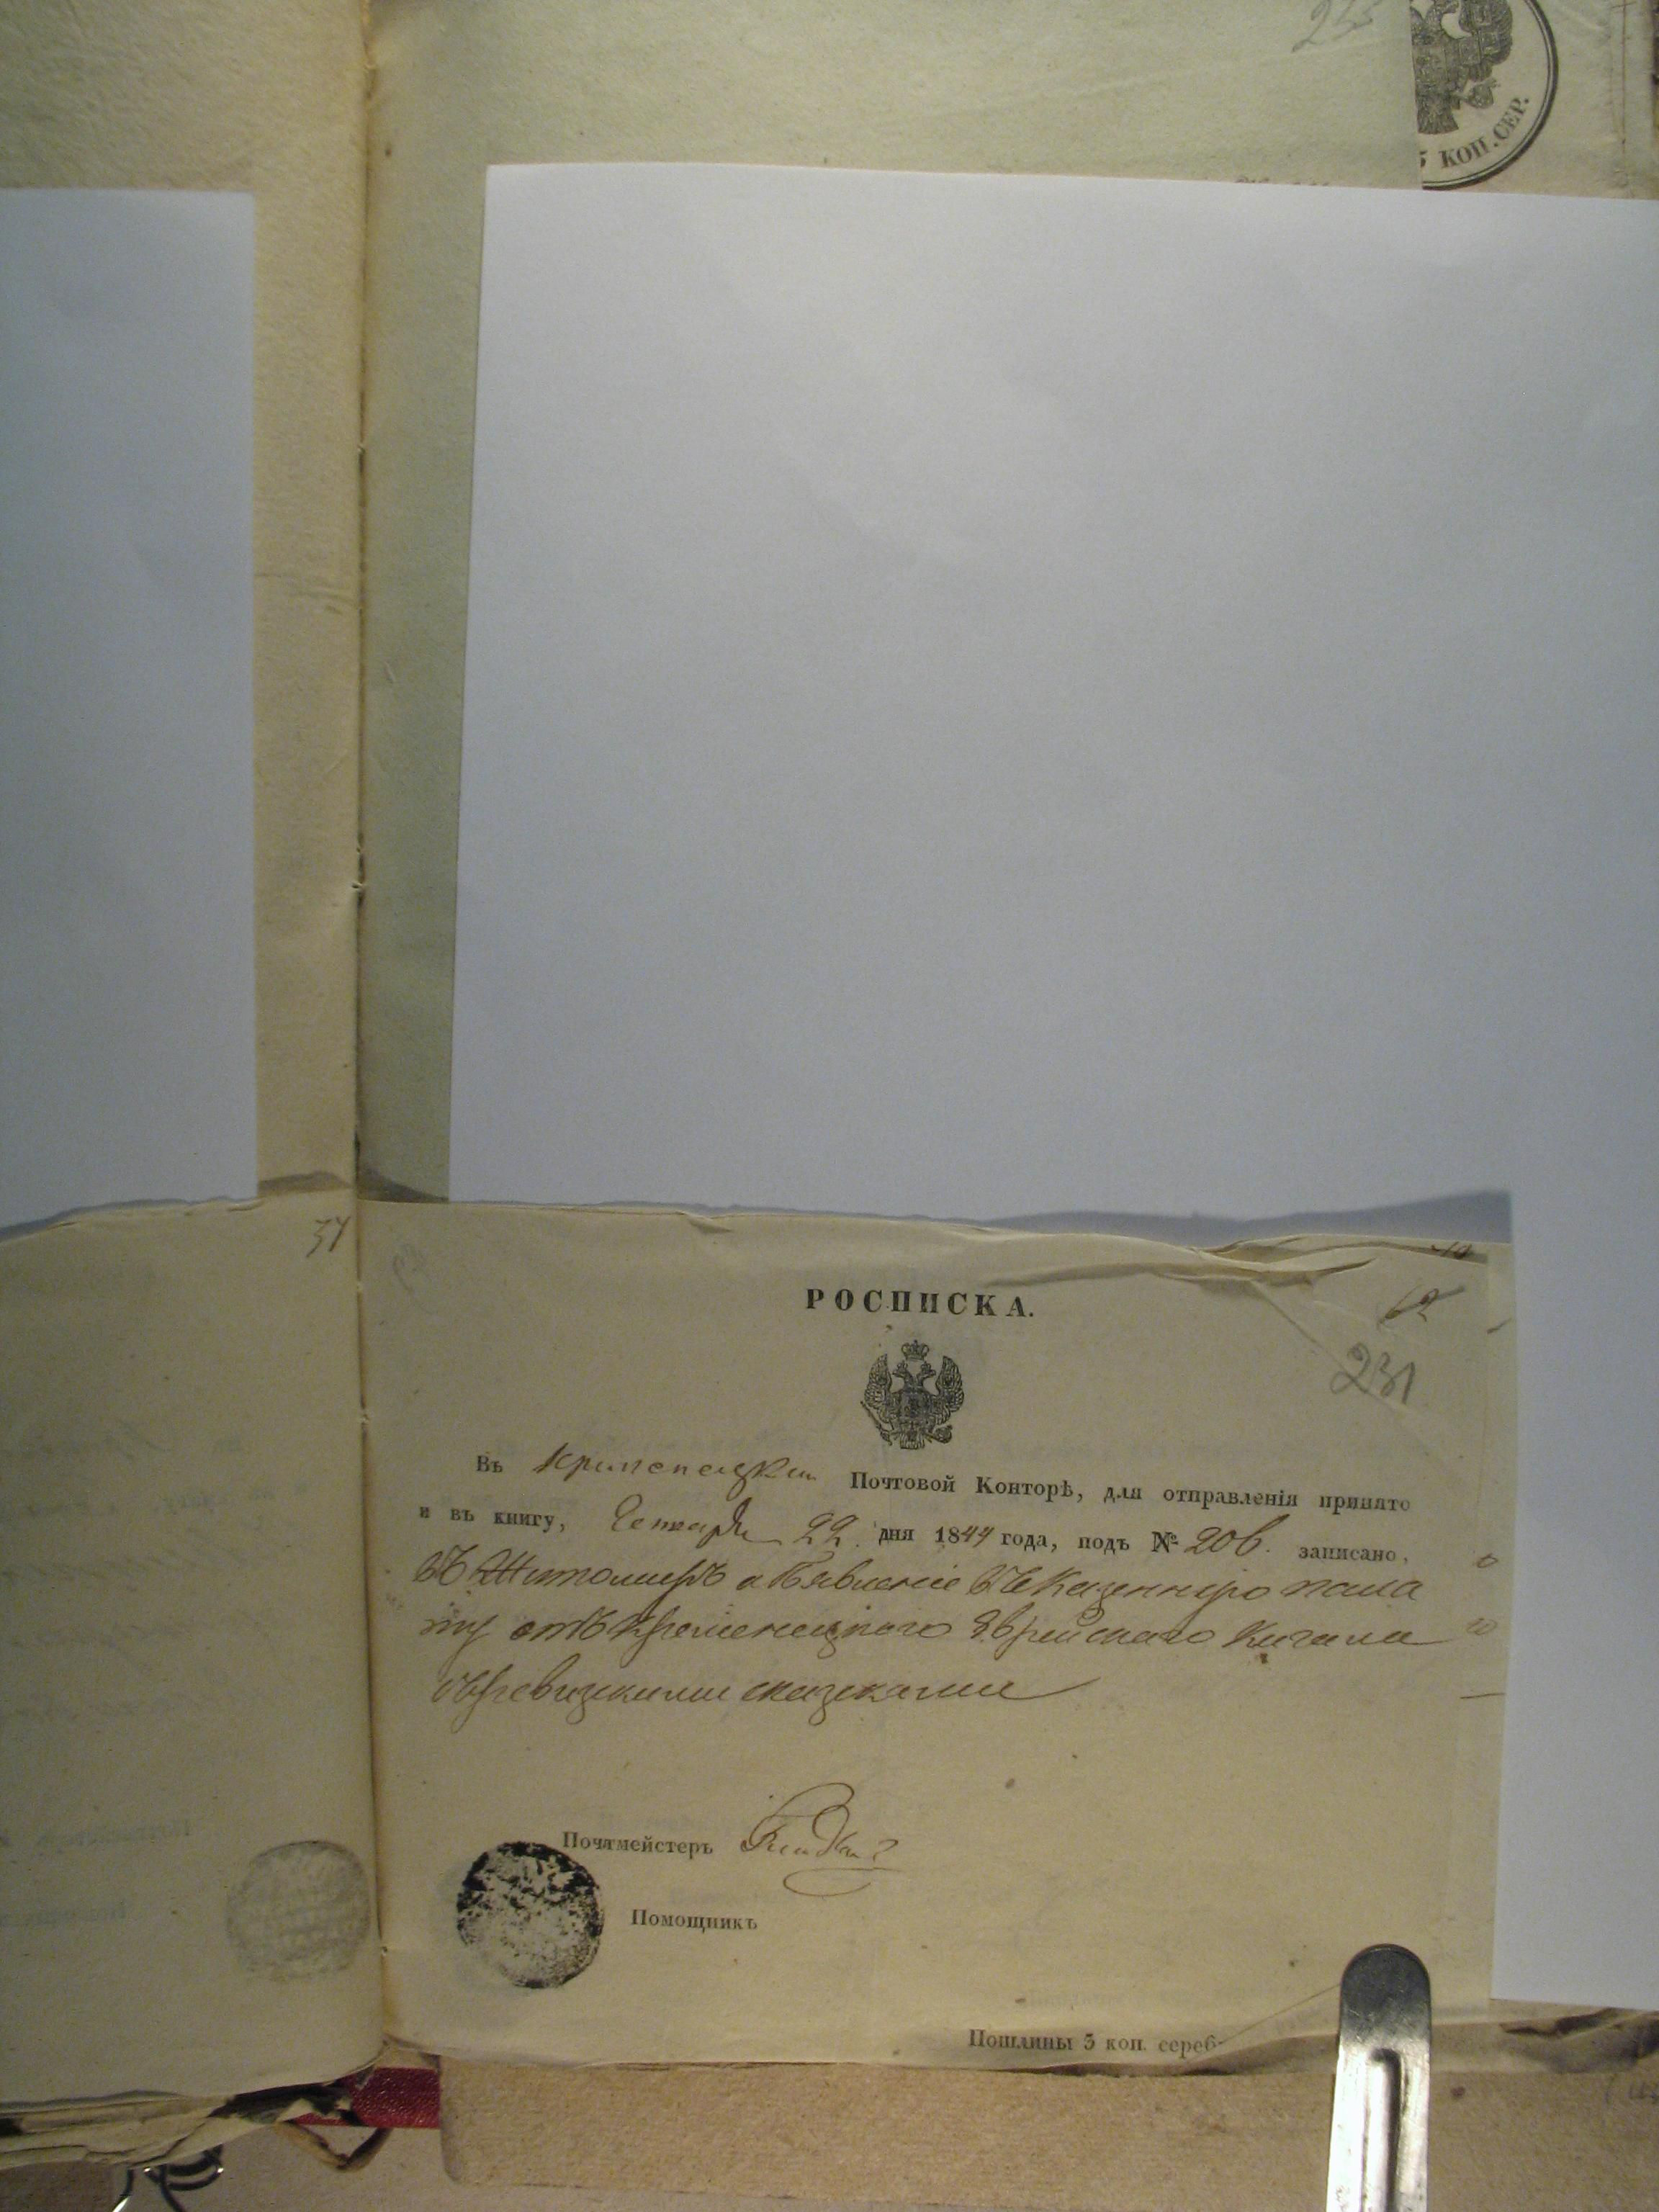 5 КОП. СЕР.
34
РОСПИСКА.
62
231
Въ Кременецкой Почтовой Конторѣ, для отправленія принято
и въ книгу, Генваря 22. дня 1844 года, подъ № 206. записано,
въ Житомиръ объявленіе въ Казенную пала
ту отъ Кременецкаго Еврейскаго Кагала
съ ревизскими сказками
Почтмейстеръ
Помощникъ
Пошлины 5 коп. сереб